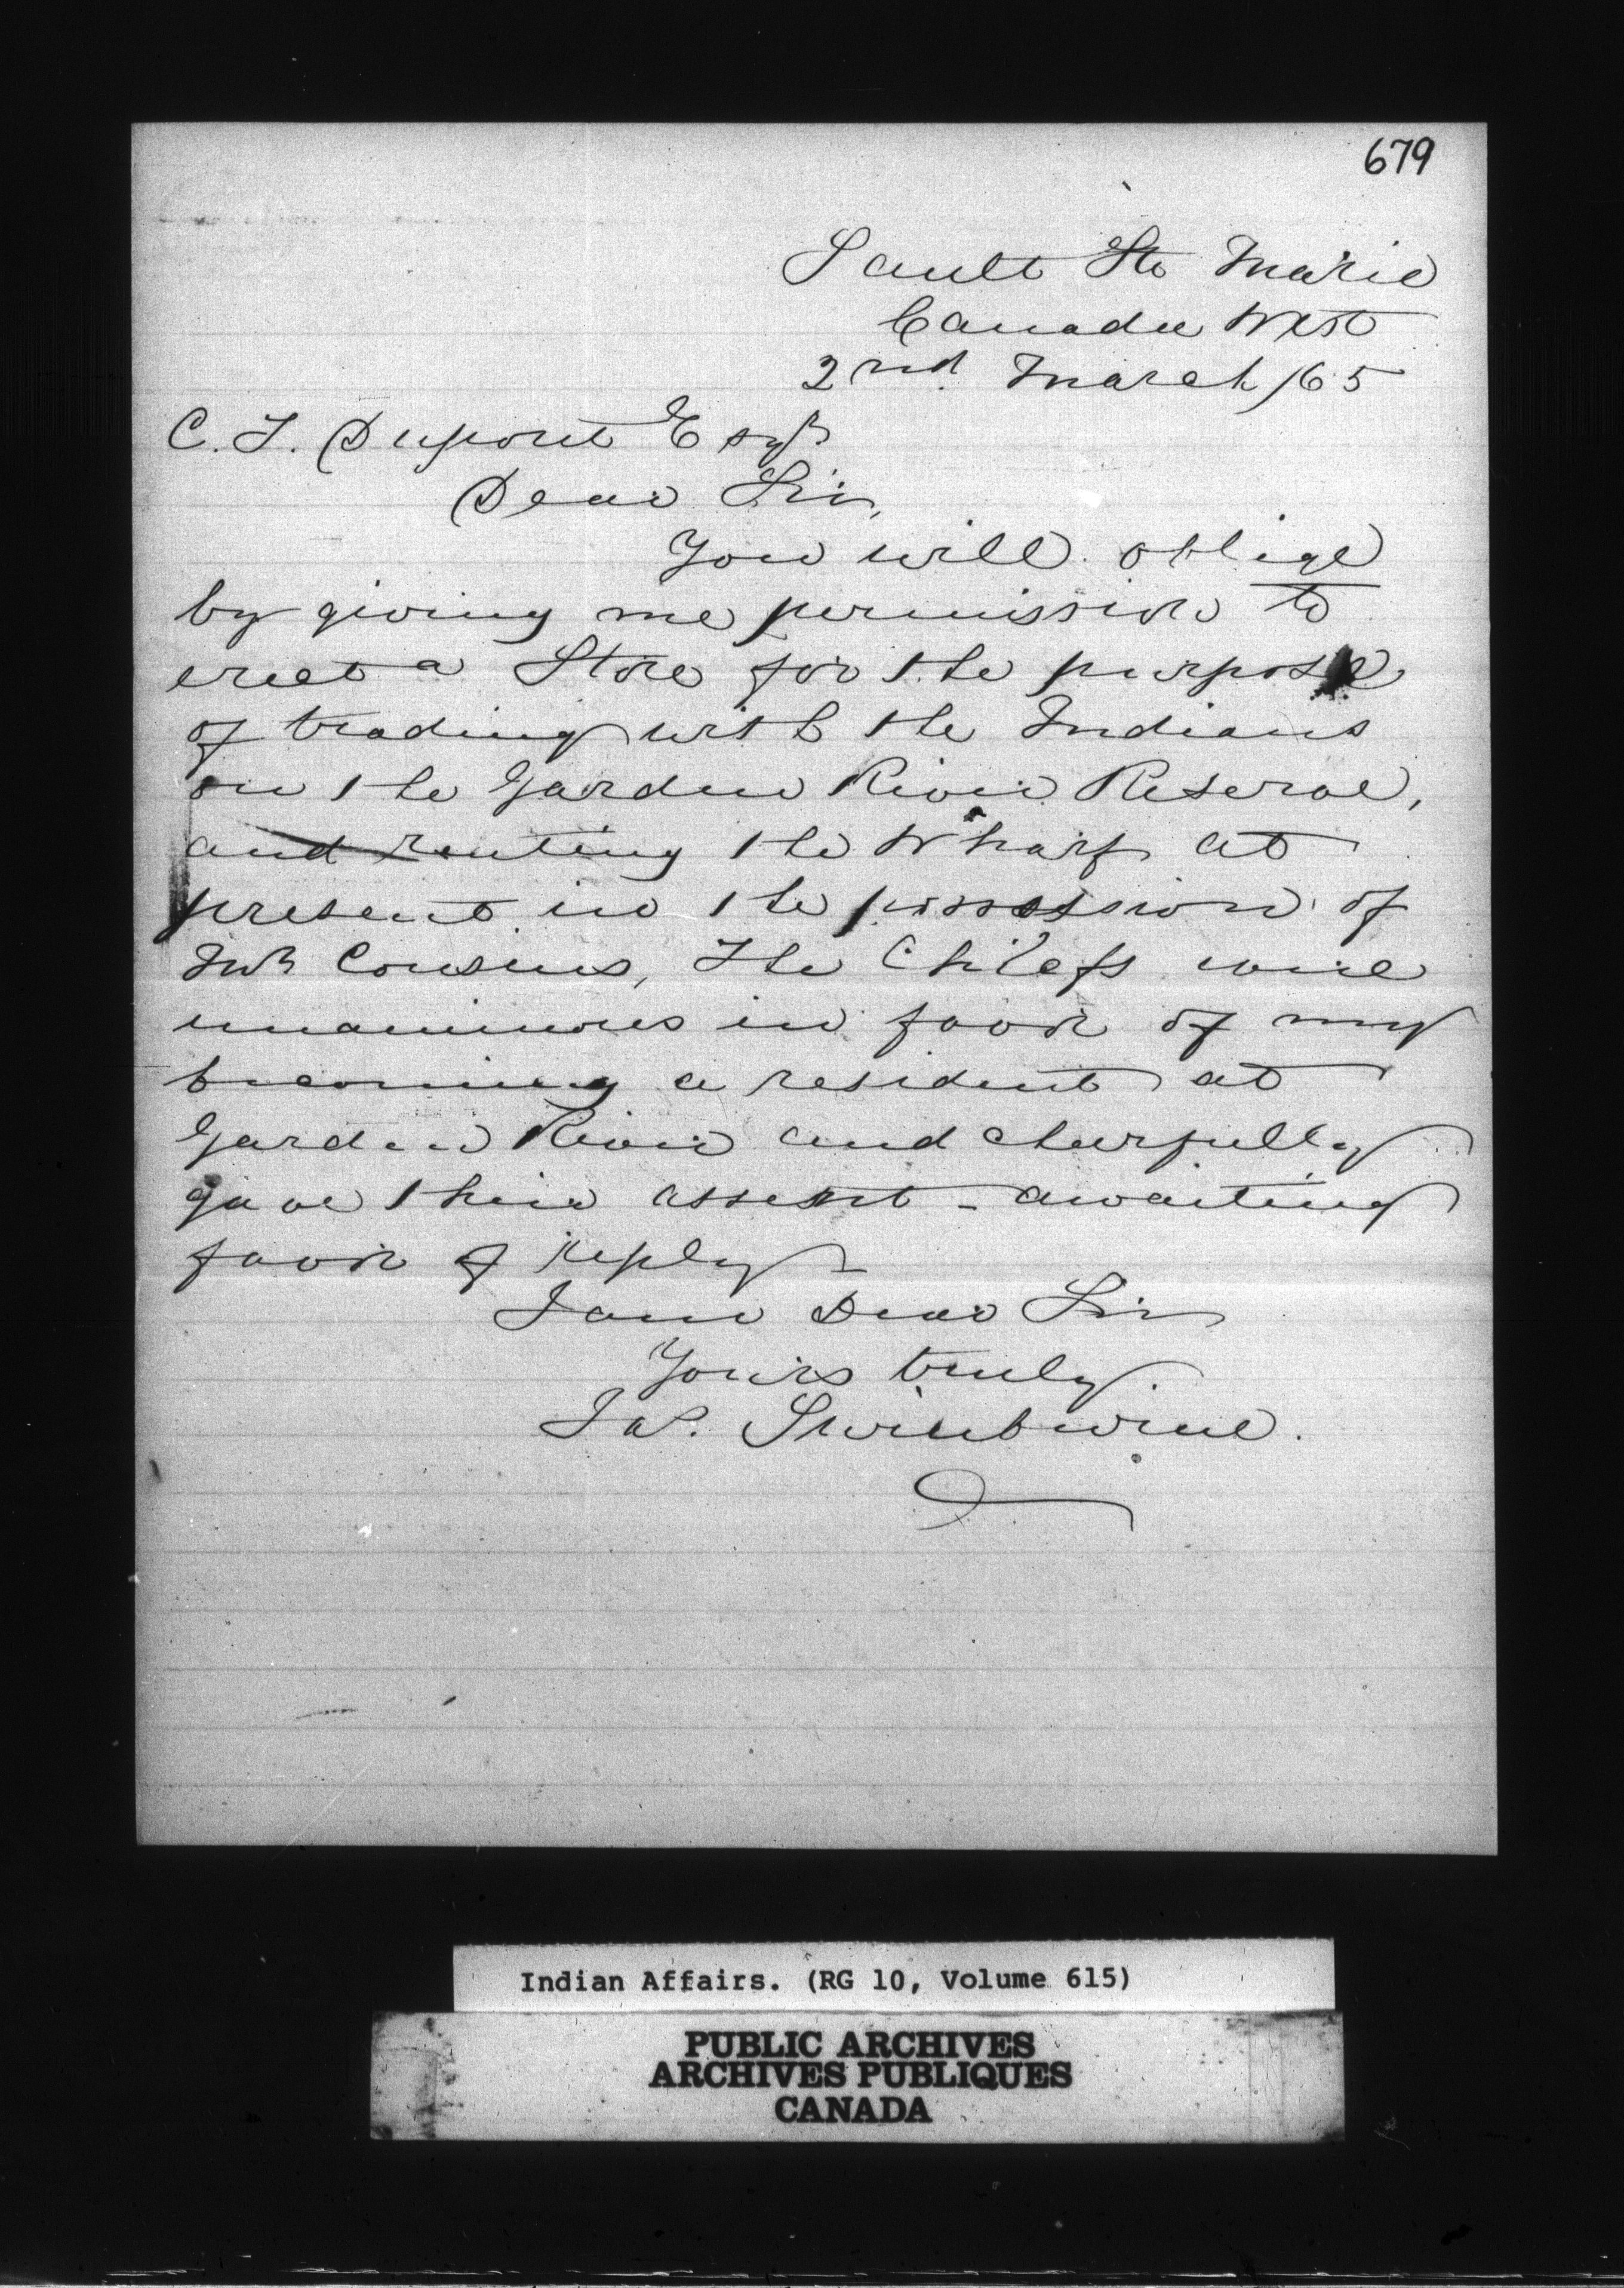 679
Sault Ste Marie
Canada West
2nd March /65
C. T. Dupont Esqr
Dear Sir,
You will oblige
by giving me permission to
erect a Store for the purpose
of trading with the Indians
on the Garden River Reserve,
and renting the Wharf at
present in the possession of
Mr Cousins, The Chiefs were
unanimous in favor of my
becoming a resident at
Garden River and cheerfully
gave their assent - awaiting
favor of reply
I am Dear Sir
Yours truly.
Jas. Swinburne.
Indian Affairs. (RG 10, Volume 615)
PUBLIC ARCHIVES
ARCHIVES PUBLIQUES
CANADA